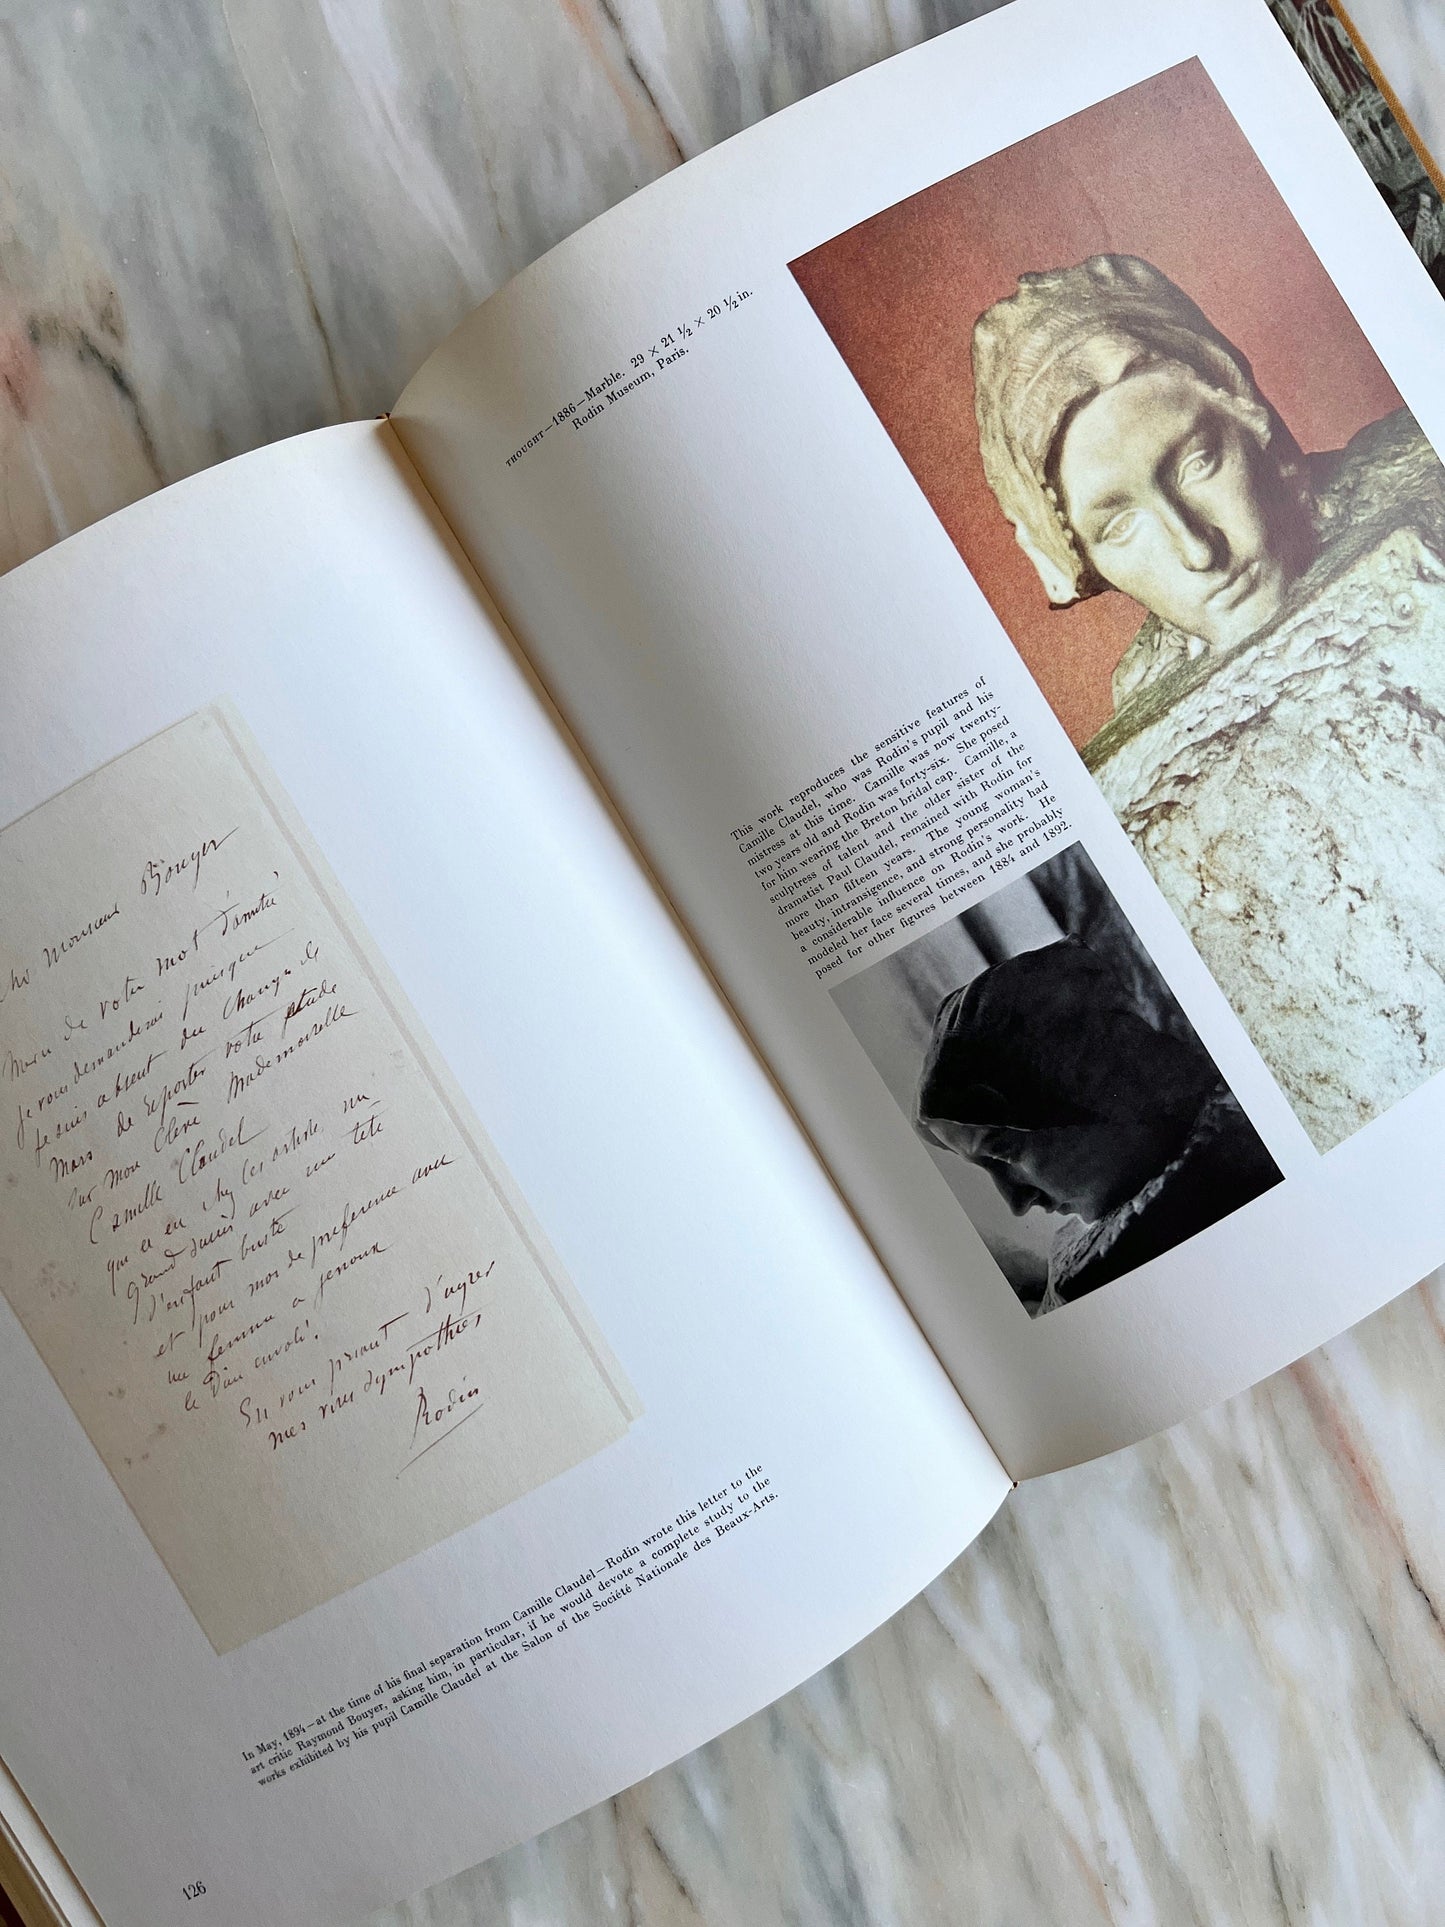 Bouyer
Monsieur
de votre mot d'amitié
je vous demanderai puisque
je suis absent du Champ de
Mars de reporter votre étude
sur mon Elève Mademoiselle
Camille Claudel
qui a eu chez les artistes un
grand succès avec une tête
d'enfant buste
et pour moi de preference avec
une femme a genoux
le Dieu envolé!
En vous priant d'agréer
mes vives sympathies
Rodin
In May, 1894—at the time of his final separation from Camille Claudel—Rodin wrote this letter to the
art critic Raymond Bouyer, asking him, in particular, if he would devote a complete study to the
works exhibited by his pupil Camille Claudel at the Salon of the Société Nationale des Beaux-Arts.
126
THOUGHT—1886—Marble. 29 × 21 ½ × 20 ½ in.
Rodin Museum, Paris.
This work reproduces the sensitive features of
Camille Claudel, who was Rodin's pupil and his
mistress at this time. Camille was now twenty-
two years old and Rodin was forty-six. She posed
for him wearing the Breton bridal cap. Camille, a
sculptress of talent and the older sister of the
dramatist Paul Claudel, remained with Rodin for
more than fifteen years. The young woman's
beauty, intransigence, and strong personality had
a considerable influence on Rodin's work. He
modeled her face several times, and she probably
posed for other figures between 1884 and 1892.